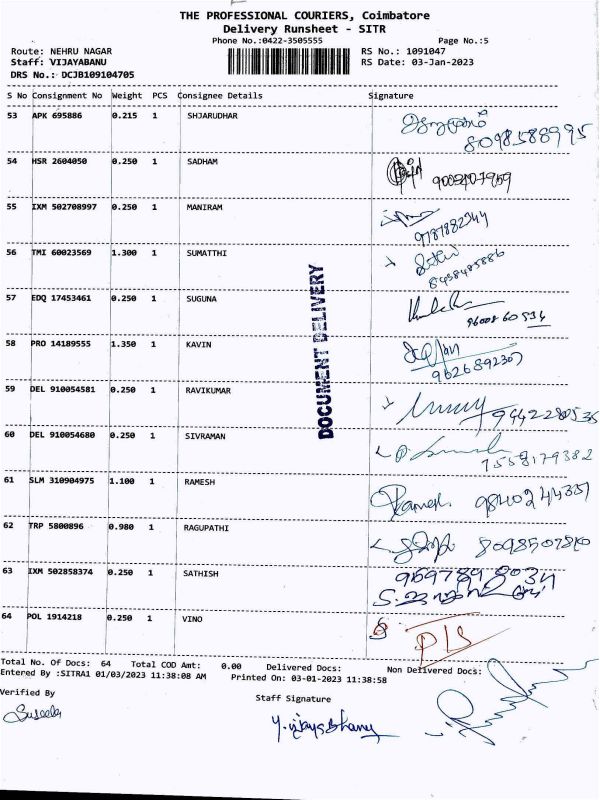 THE PROFESSIONAL COURIERS, Coimbatore
Delivery Runsheet - SITR
Phone No.:0422-3505555 Page No.:5
Route: NEHRU NAGAR RS No.: 1091047
Staff: VIJAYABANU RS Date: 03-Jan-2023
DRS No.: DCJB109104705
S No Consignment No Weight PCS Consignee Details Signature
53 APK 695886 0.215 1 SHJARUDHAR
8098588995
54 HSR 2604050 0.250 1 SADHAM
55 IXM 502708997 0.250 1 MANIRAM
9787882344
56 TMI 60023569 1.300 1 SUMATTHI
8438485886
57 EDQ 17453461 0.250 1 SUGUNA
96008 60534
58 PRO 14189555 1.350 1 KAVIN
9626892307
59 DEL 910054581 0.250 1 RAVIKUMAR
9442280536
60 DEL 910054680 0.250 1 SIVRAMAN
7558179382
61 SLM 310904975 1.100 1 RAMESH
Ramesh 9840244337
62 TRP 5800896 0.980 1 RAGUPATHI
8098507810
63 IXM 502858374 0.250 1 SATHISH
64 POL 1914218 0.250 1 VINO
DOCUMENT DELIVERY
Total No. Of Docs: 64 Total COD Amt: 0.00 Delivered Docs: Non Delivered Docs:
Entered By :SITRA1 01/03/2023 11:38:08 AM Printed On: 03-01-2023 11:38:58
Verified By
Staff Signature